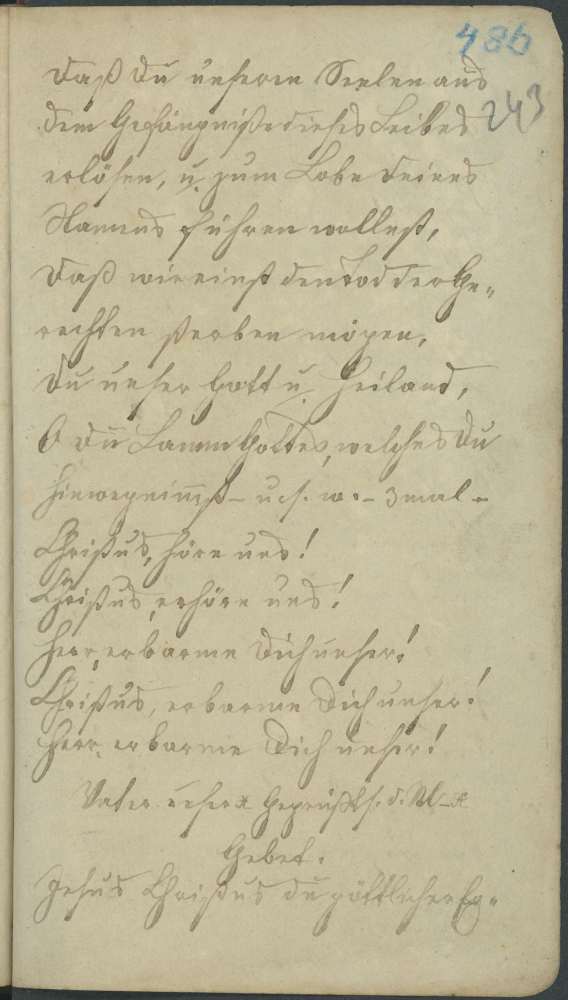 486
Daß Du unsere Seelen aus
243
dem Gefängniße dieses Leibes
erlösen, u. zum Lobe deines
Namens führen wollest,
Daß wir einst den Tod der Ge-
rechten sterben mögen,
Du unser Gott u. Heiland,
O Du Lamm Gottes, welches Du
hinwegnim̅st - u. s. w. - 3 mal -
Christus, höre uns!
Christus, erhöre uns!
Herr, erbarme Dich unser!
Christus, erbarme Dich unser!
Herr, erbarme Dich unser!
Vater unser x Gegrüßt s. d. M - x
Gebet.
Jesus Christus du göttlicher